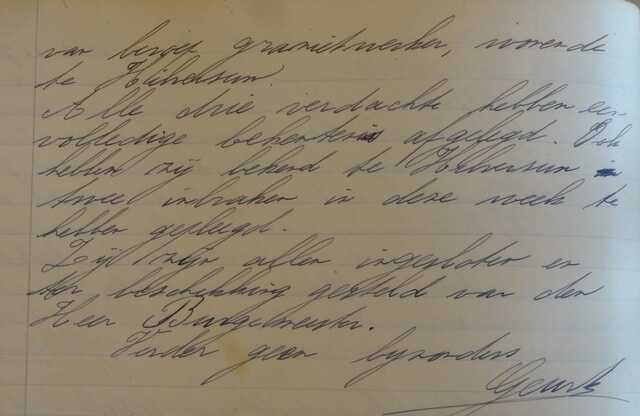 van beroep granietwerker, wonende
te Hilversum.
Alle drie verdachte hebben een
volledige bekentenis afgelegd. Ook
hebben zij bekend te Hilversum in
twee inbraken in deze week te
hebben gepleegd.
Zij zijn allen ingesloten en
ter beschikking gesteld van den
Heer Burgemeester.
Verder geen byzonders